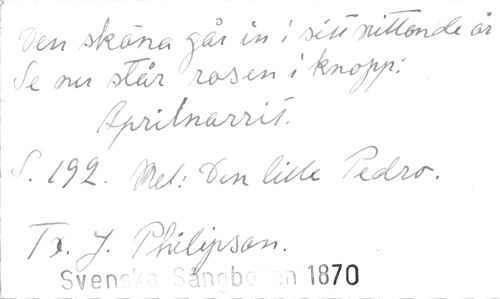 Den sköna går in i sitt nittonde år
Se nu står rosen i knopp:
Aprilnarrit.
S. 192. Mel: Den lille Pedro.
Tx. J. Philipson.
Svenska Sångboken 1870